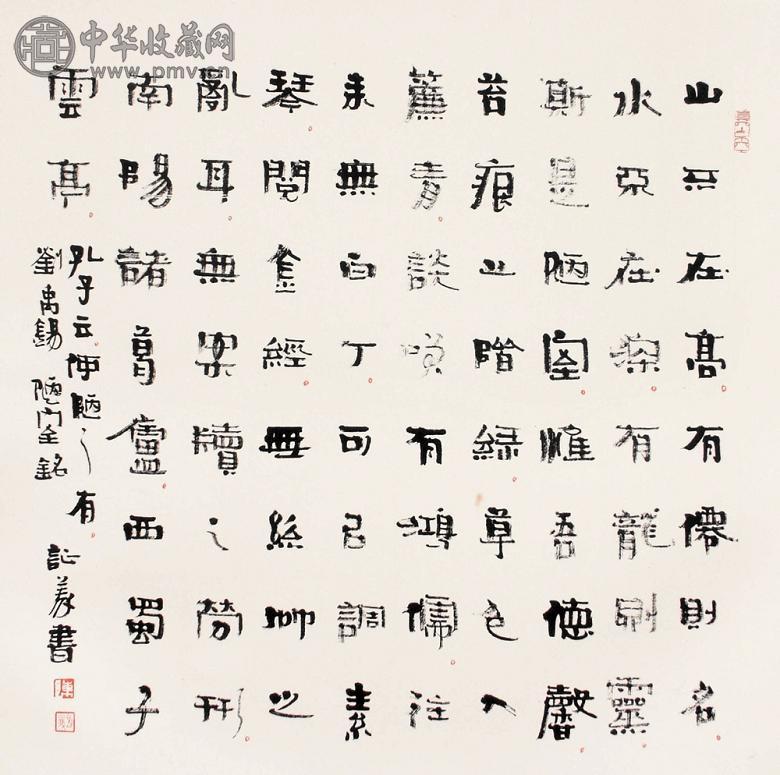 中华收藏网
www.pmv.cn
山不在高有僊則名
水不在深有龍則靈
斯是陋室惟吾德馨
苔痕上階緑草色入
簾青談笑有鴻儒往
来無白丁可以調素
琴閲金經無絲竹之
亂耳無案牘之勞形
南陽諸葛廬西蜀子
雲亭
孔子云何陋之有
劉禹錫陋室銘
義書